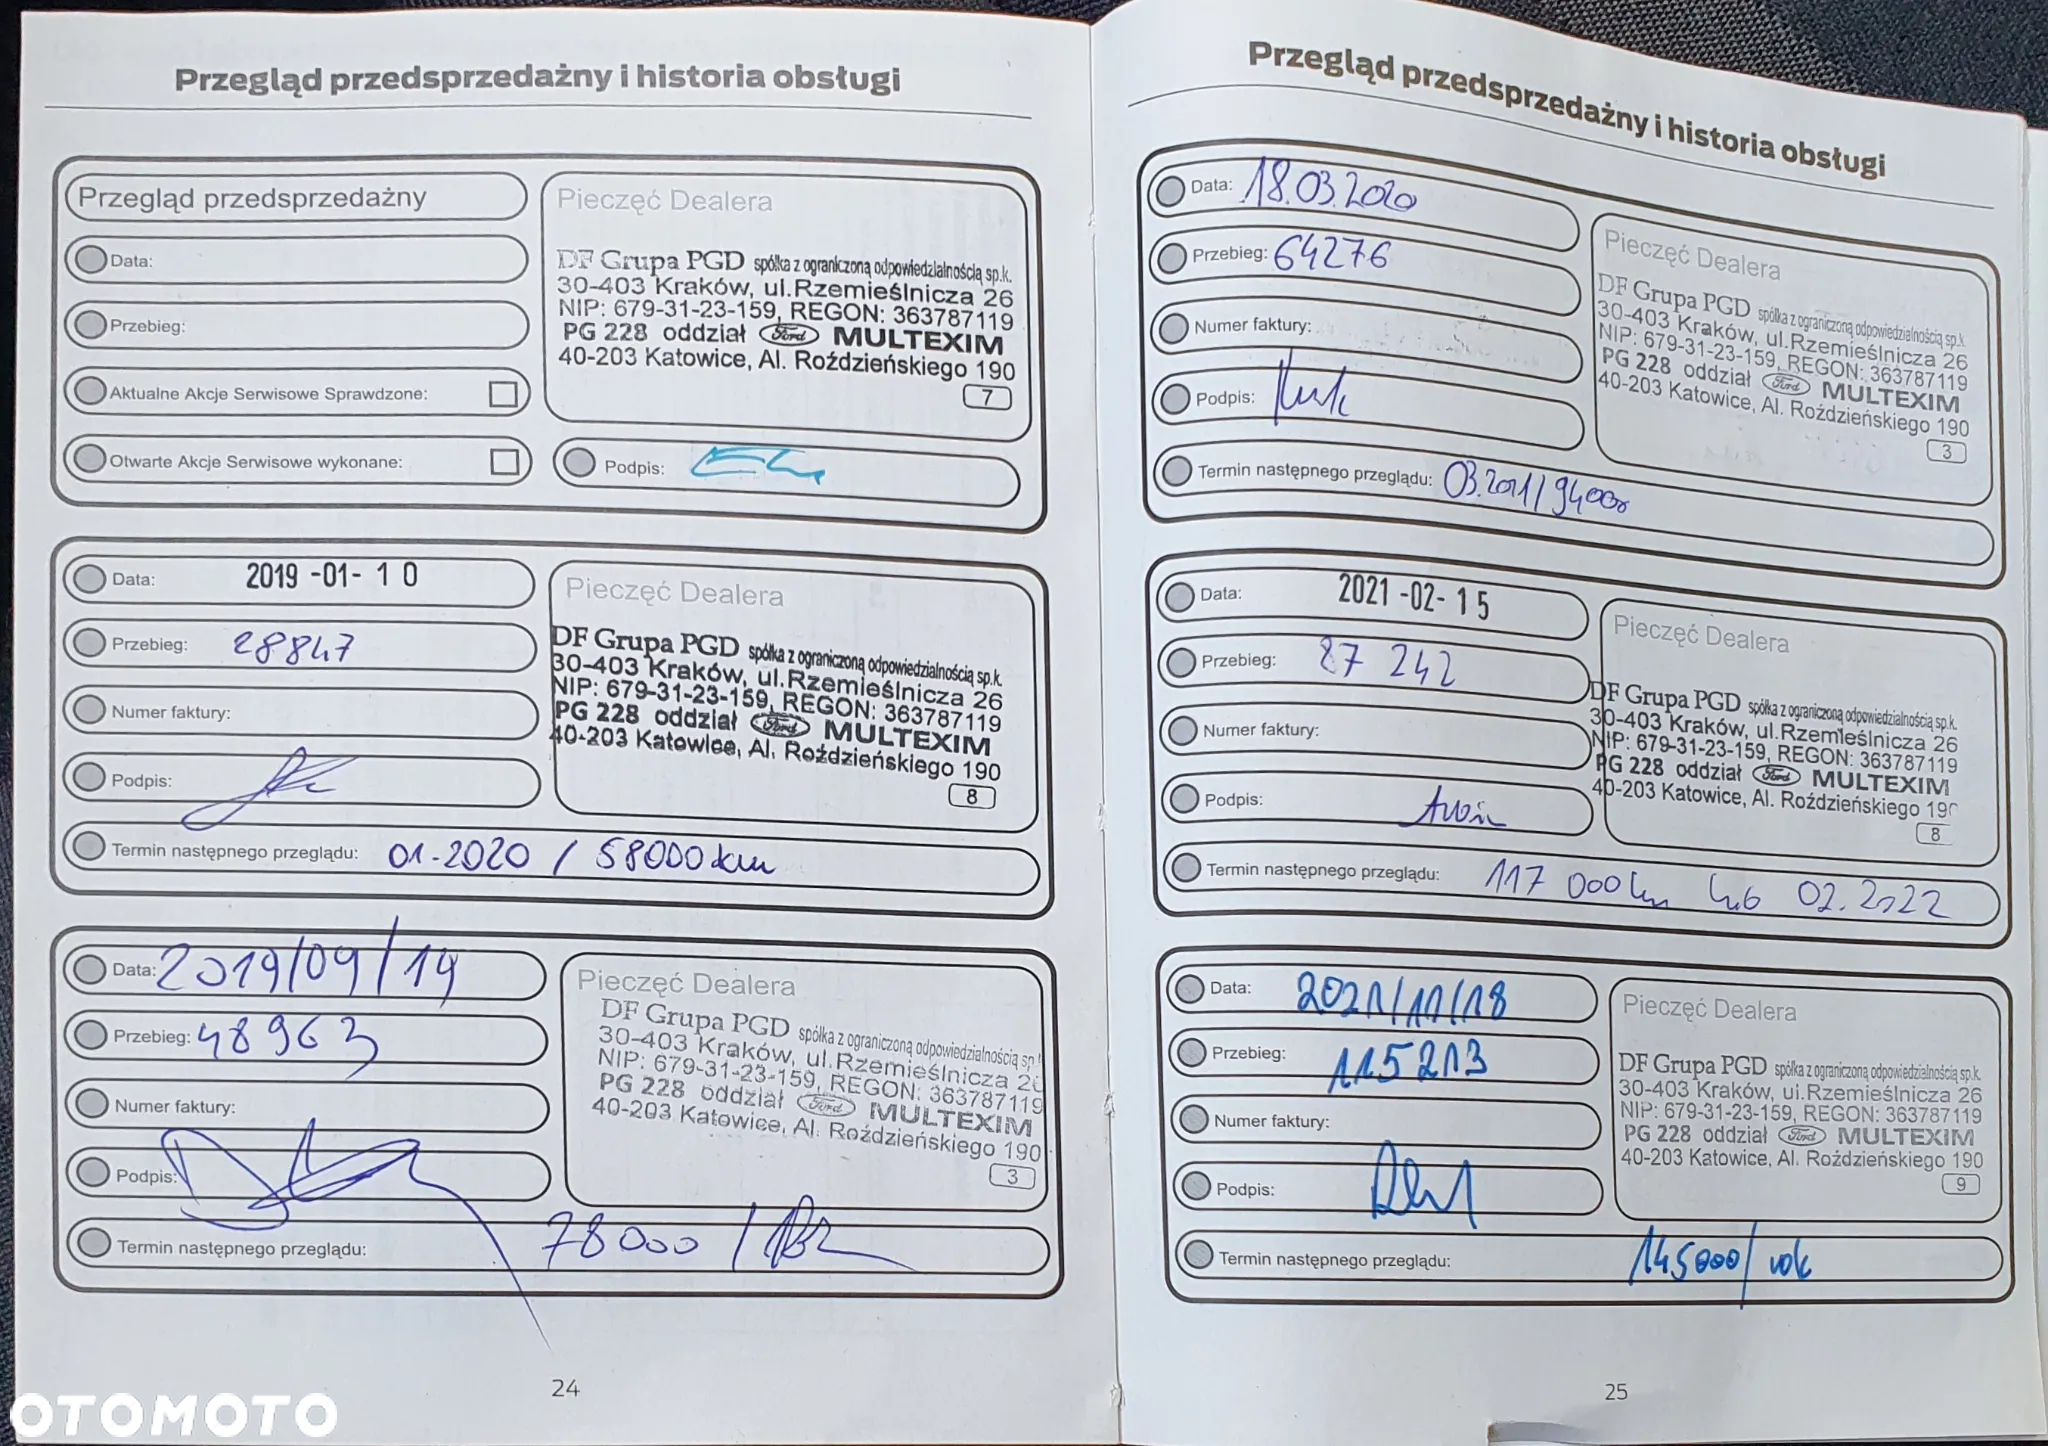 Przegląd przedsprzedażny i historia obsługi
Przegląd przedsprzedażny
Data:
Przebieg:
Aktualne Akcje Serwisowe Sprawdzone:
Otwarte Akcje Serwisowe wykonane:
Pieczęć Dealera
DF Grupa PGD spółka z ograniczoną odpowiedzialnością sp.k.
30-403 Kraków, ul.Rzemieślnicza 26
NIP: 679-31-23-159, REGON: 363787119
PG 228 oddział Ford MULTEXIM
40-203 Katowice, Al. Roździeńskiego 190
7
Podpis:
Data: 2019 -01- 1 0
Przebieg: 28847
Numer faktury:
Podpis:
Pieczęć Dealera
DF Grupa PGD spółka z ograniczoną odpowiedzialnością sp.k.
30-403 Kraków, ul.Rzemieślnicza 26
NIP: 679-31-23-159, REGON: 363787119
PG 228 oddział Ford MULTEXIM
40-203 Katowice, Al. Roździeńskiego 190
8
Termin następnego przeglądu: 01-2020 / 58000 km
Data: 2019/09/19
Przebieg: 48963
Numer faktury:
Podpis:
Pieczęć Dealera
DF Grupa PGD spółka z ograniczoną odpowiedzialnością sp.
30-403 Kraków, ul.Rzemieślnicza 26
NIP: 679-31-23-159, REGON: 363787119
PG 228 oddział Ford MULTEXIM
40-203 Katowice, Al. Roździeńskiego 190
3
Termin następnego przeglądu: 78000 /
24
Przegląd przedsprzedażny i historia obsługi
Data: 18.03.2020
Przebieg: 64276
Numer faktury:
Podpis:
Pieczęć Dealera
DF Grupa PGD spółka z ograniczoną odpowiedzialnością sp.k
30-403 Kraków, ul.Rzemieślnicza 26
NIP: 679-31-23-159, REGON: 363787119
PG 228 oddział Ford MULTEXIM
40-203 Katowice, Al. Roździeńskiego 190
3
Termin następnego przeglądu: 03.2021/94000
Data: 2021 -02- 1 5
Przebieg: 87 242
Numer faktury:
Podpis:
Pieczęć Dealera
DF Grupa PGD spółka z ograniczoną odpowiedzialnością sp.k.
30-403 Kraków, ul.Rzemieślnicza 26
NIP: 679-31-23-159, REGON: 363787119
PG 228 oddział Ford MULTEXIM
40-203 Katowice, Al. Roździeńskiego 190
8
Termin następnego przeglądu: 117 000 km lub 02.2022
Data: 2021/11/18
Przebieg: 115213
Numer faktury:
Podpis:
Pieczęć Dealera
DF Grupa PGD spółka z ograniczoną odpowiedzialnością sp.k.
30-403 Kraków, ul.Rzemieślnicza 26
NIP: 679-31-23-159, REGON: 363787119
PG 228 oddział Ford MULTEXIM
40-203 Katowice, Al. Roździeńskiego 190
9
Termin następnego przeglądu: 145000/ rok
25
OTOMOTO